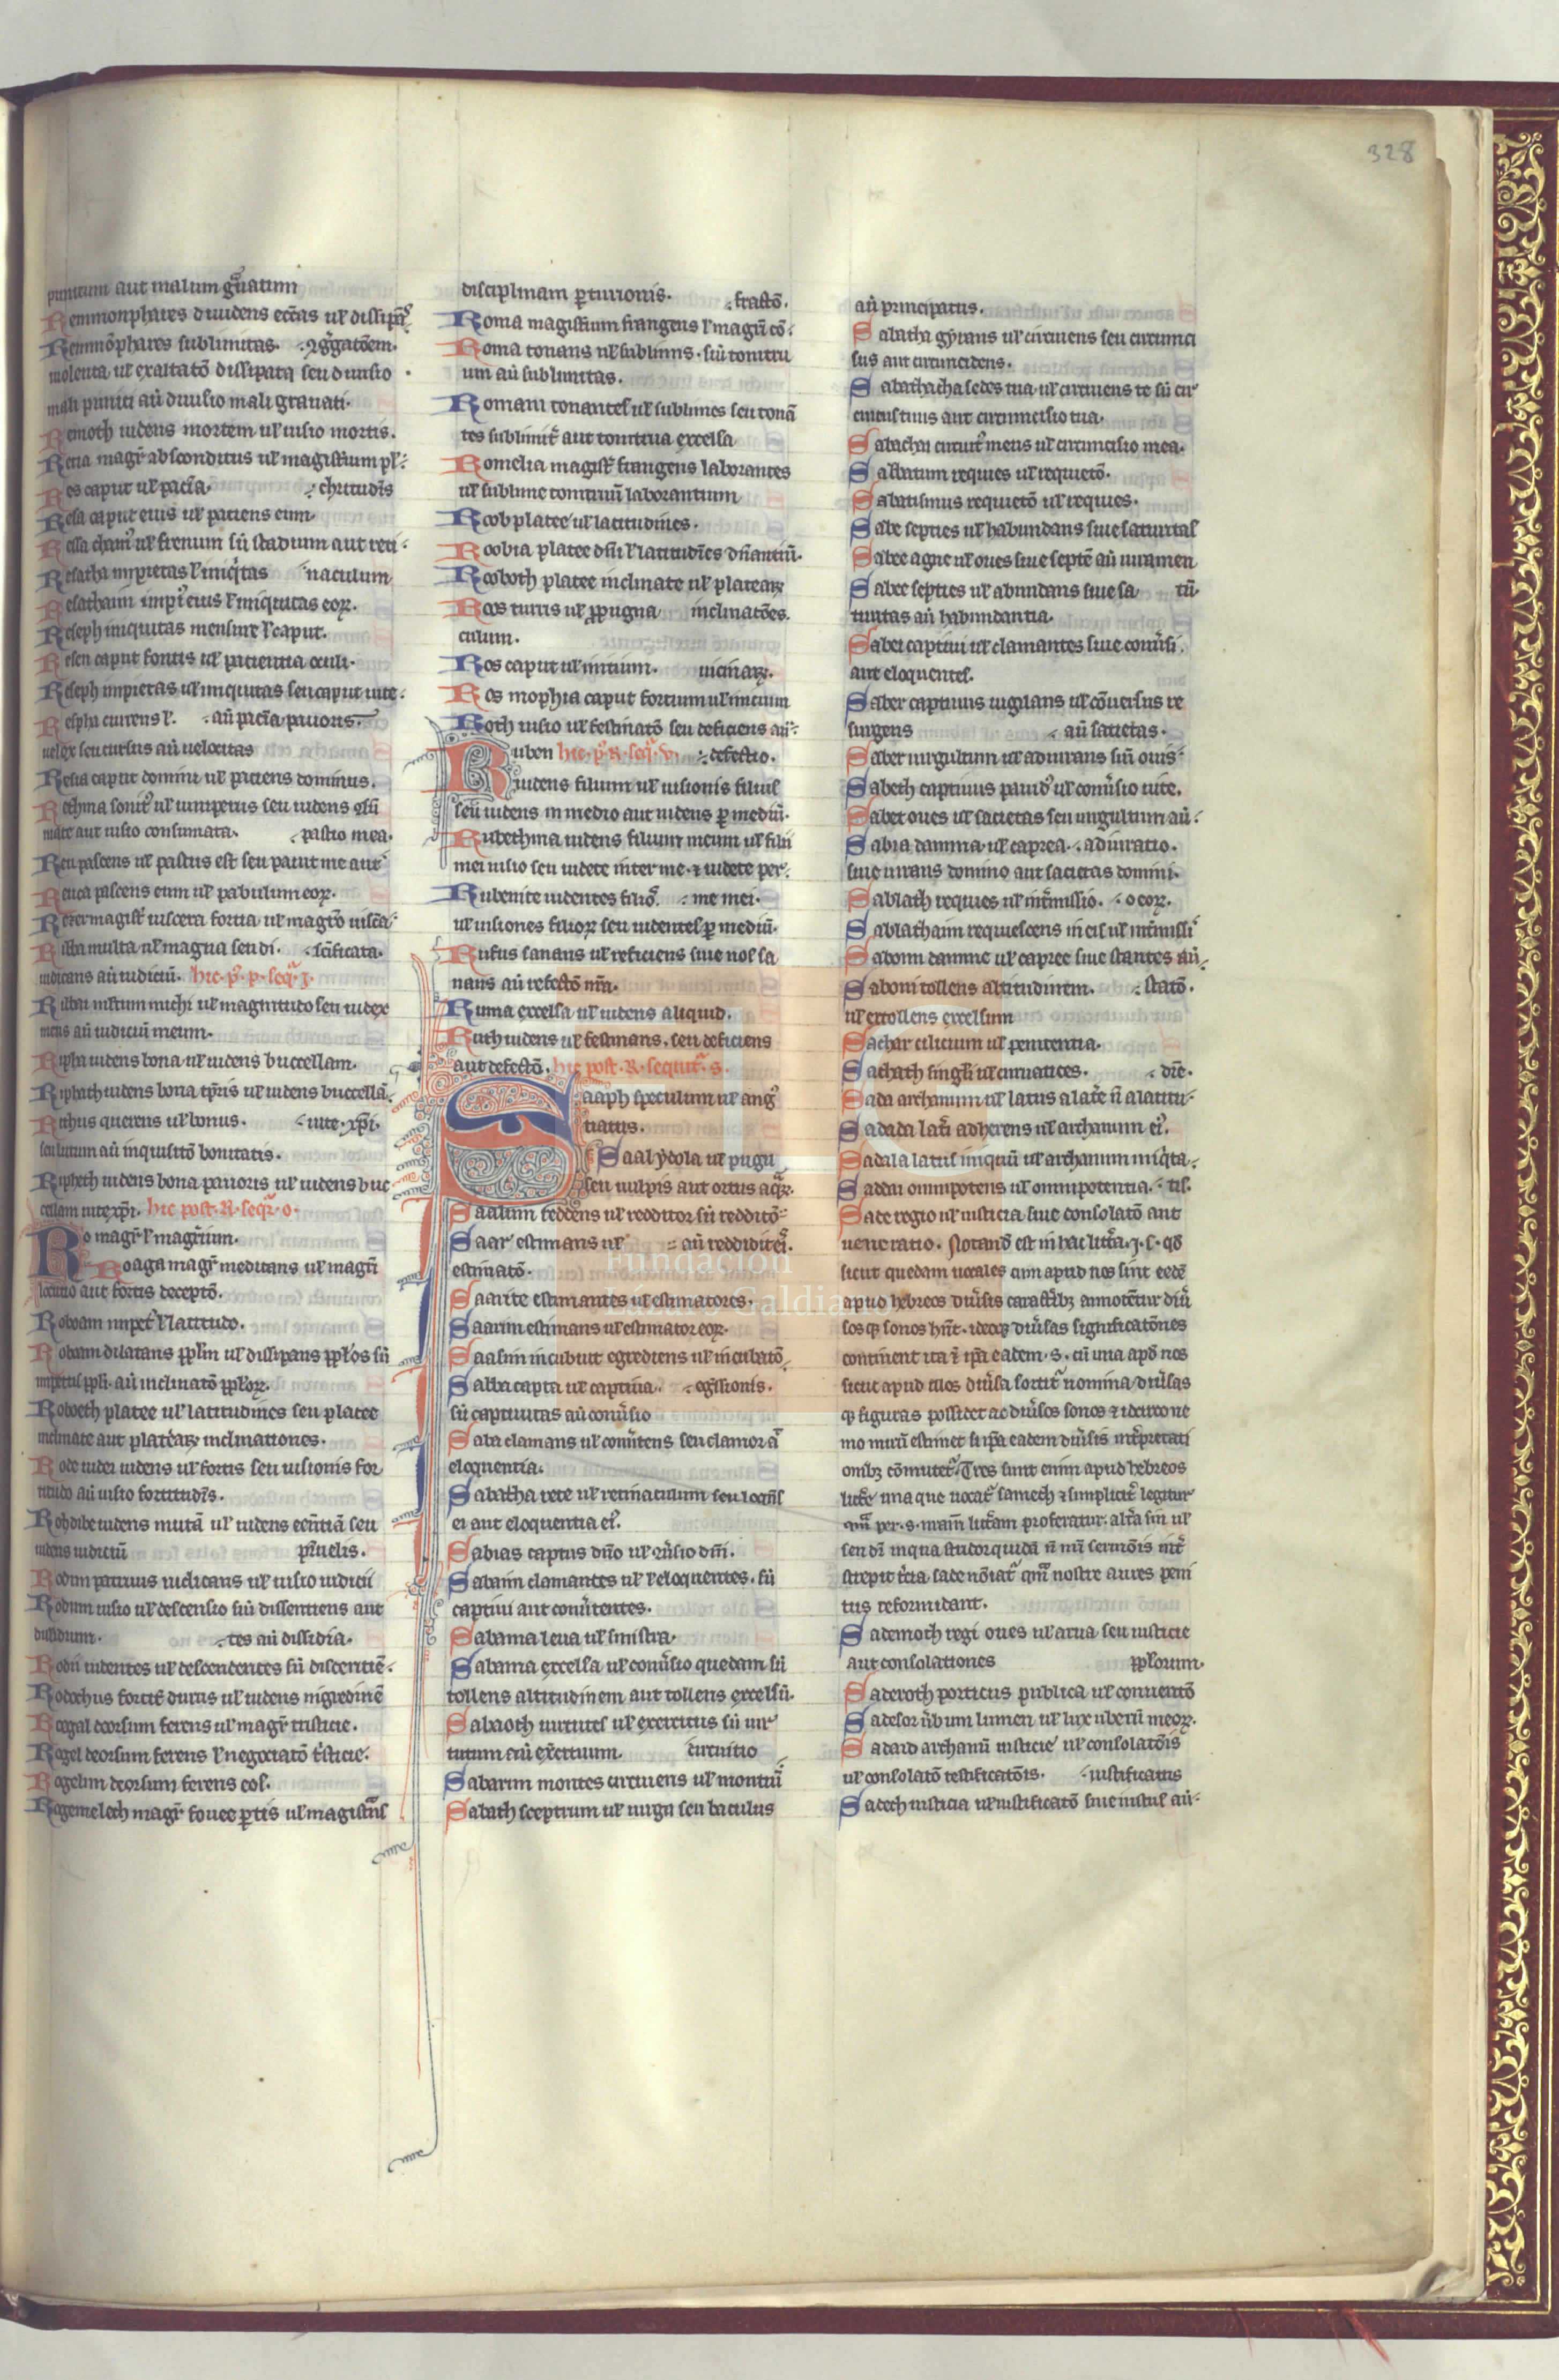 328
punitum aut malum gͣuatum
Remmonphares diuidens ecc̄as ul̄ dissipās
Remmōphares sublimitas. ꝯgͣgatōem.
molenta ul̄ exaltatō dissipata seu diuisio
mali puniti aū diuisio mali grauati.
Remoth uidens mortem ul̄ uisio mortis.
Rena magr̄ absconditus ul̄ magistrum pl̄
Res caput ul̄ pacīa. chritudīs
Resa caput eius ul̄ patiens eum
Ressa cham' ul̄ frenum sū stadium aut reti
Resatha impietas l̄ iniqͥtas naculum
Resathaim impī eius l̄ iniquitas eoꝝ.
Reseph iniquitas mensure l̄ caput.
Resen caput fontis ul̄ patientia oculi.
Reseph impietas ul̄ iniquitas seu caput uite.
Respha currens l̄. aū pacīa pauoris.
uelox seu cursus aū uelocitas
Resia caput domini ul̄ patiens dominus.
Rethma sonit' ul̄ iuniperus seu uidens ꝯsū
mate aut uisio consumata. pastio mea.
Reu pascens ul̄ pastus est seu pauit me aut
Reuca pascens eum ul̄ pabulum eoꝝ.
Rezer magist̄ uiscera fortia ul̄ magrō uisc̄a
Ribba multa ul̄ magna seu di. scīficata.
iudicans aū iudiciū. hic. p'. p. seqͥ. j.
Ribbai nostrum michi ul̄ magnitudo seu iudex
meus aū iudiciū meum.
Ripha uidens bona ul̄ uidens buccellam.
Riphath uidens bona tp̄ris ul̄ uidens buccellā
Rithus querens ul̄ bonus. uite. xp̄i.
seu lutum aū inquisitō bonitatis.
Ripheth uidens bona pauoris ul̄ uidens buc
cellam uite xp̄i. hic post. R. seqͥr. o.
Ro magr̄ l̄ magr̄ium.
Roaga magr̄ meditans ul̄ magn̄
locutio aut fortis deceptō.
Roboam impet' l̄ latitudo.
Roboam dilatans pplm̄ ul̄ dissipans pplōs sū
impetus ppli. aū inclinatō ppl̄oꝝ.
Roboeth platee ul̄ latitudines seu platee
inclinate aut plateaꝝ inclinationes.
Roce uider uidens ul̄ fortis seu uisionis for
titudo aū uisio fortitudīs.
Rohdibe uidens mutā ul̄ uidens ecen̄tiā seu
uidens iudiciū pūelis.
Rodim patruus iudicans ul̄ uisio iudicii
Rodum uisio ul̄ descensio siū dissentiens aut
dissidium. tes aū dissidia.
Rodii uidentes ul̄ descendentes sū discentiē
Rodochus fortit̄ durus ul̄ uidens nigredinē
Roegal deorsum ferens ul̄ magr̄ tristicie.
Rogel deorsum ferens l̄ negociatō tͥsticie.
Rogelim deorsum ferens eos.
Rogemelech magr̄ fouee ꝑtis ul̄ magistr̄is
disciplinam ꝑturionis. fractō.
Roma magistrum frangens l̄ magn̄ cō
Roma tonans ul̄ sublimis. siū tonitru
um aū sublimitas.
Romani tonantes ul̄ sublimes seu tonā
tes sublimit̄ aut tonitrua excelsa
Romelia magist̄ frangens laborantes
ul̄ sublime tonitruū laborantium
Roob platee ul̄ latitudines.
Roobia platee dn̄i l̄ latitudīes dn̄antiū.
Rooboth platee inclinate ul̄ plateaꝝ
Roos turris ul̄ ꝓpugna inclinatōes.
culum.
Ros caput ul̄ initium. uicinaꝝ.
Ros mophia caput fortium ul̄ initium
Roth uisio ul̄ festinatō seu deficiens aū
Ruben hic. p'. R. seqͥ. v. defectio.
uidens filium ul̄ uisionis filius
seū uidens in medio aut uidens ꝑ mediū.
Rubethma uidens filium meum ul̄ filii
mei uisio seu uidete inter me. ⁊ uidete per
Rubenite uidentes filio'. me mei.
ul̄ uisiones filioꝝ seu uidentes ꝑ mediū.
Rufus sanans ul̄ reficiens siue nos sa
nans aū refectō nr̄a.
Ruma excelsa ul̄ uidens aliquid.
Ruth uidens ul̄ festinans. seu deficiens
aut defectō. hic post. R. sequit̄. s.
Saaph speculum ul̄ ang'
tiatus.
Saal ydola ul̄ pugn
seu uulpis aut ortus aqͣꝝ.
Saalim reddens ul̄ redditor sū redditō
Saar estimans ul̄ aū reddidit eī.
estimatō.
Saarite estimantes ul̄ estimatores.
Saarim estimans ul̄ estimator eoꝝ.
Saasim incubuit egrediens ul̄ incubatō
Sabba capta ul̄ captiua. egssionis.
sū captiuitas aū conūsio
Saba clamans ul̄ conūtens seu clamor aͭ
eloquentia.
Sabatha rete ul̄ retinaculum seu loqn̄s
ei aut eloquentia eī.
Sabias captus dn̄o ul̄ ꝯūsio dn̄i.
Sabaim clamantes ul̄ l̄ eloquentes. sū
captiui aut conūtentes.
Sabama leua ul̄ sinistra.
Sabama excelsa ul̄ conūsio quedam sū
tollens altitudinem aut tollens excelsū.
Sabaoth uirtutes ul̄ exercitus sū uir
tutum aū ex̄cituum. circuitio
Sabarim montes circuiens ul̄ montiū
Sabath sceptrum ul̄ uirga seu baculus
aū principatus.
Sabatha gyrans ul̄ circuiens seu circumci
sus aut circuncidens.
Sabathacha sedes tua ul̄ circuiens te sū cir
cuitus tuus aut circumcisio tua.
Sabachai circuit' meus ul̄ circuncisio mea.
Sabbatum requies ul̄ requietō.
Sabatismus requietō ul̄ requies.
Sabe septies ul̄ habundans siue saturitas
Sabee agne ul̄ oues siue septē aū iuramen
Sabee septies ul̄ abundans siue sa tū.
turitas aū habundantia.
Sabei captiui ul̄ clamantes siue conūsi.
aut eloquentes.
Saber captiuus uigilans ul̄ cōuersus re
surgens aū satietas.
Saber uirgultum ul̄ adiurans siū ouis
Sabeth captiuus pauid' ul̄ conūsio uite.
Sabet oues ul̄ sacietas seu uirgultum aū
Sabia damma ul̄ caprea. adiuratio.
siue iurans domino aut sacietas domini.
Sablath requies ul̄ int̄missio. o eoꝝ.
Sablathaim requiescens in eis ul̄ int̄missi
Sabomi damme ul̄ capree siue stantes aū
Saboni tollens altitudinem. statō.
ul̄ extollens excelsum
Sachar cilicium ul̄ penitentia.
Sachath singl̄i ul̄ cunuatices. dīe.
Sada archanum ul̄ latus a lat̄e n̄ a latitu
Sadada lat̄i adherens ul̄ archanum eī.
Sadala latus iniquū ul̄ archanum iniqͥta
Saddai omnipotens ul̄ omnipotentia. tis.
Sade regio ul̄ iusticia siue consolatō aut
ueneratio. Notand̄ est in hac litt̄a. ꝫ. s. qd̄
sicut quedam uocales cum apud nos sint eedē
apud hebreos diūsis caract̄ibꝫ annotēntur diū
sos qꝫ sonos hn̄t. ideoqꝫ diūsas significatōnes
continent ita ⁊ ip̄a eadem. s. cū una apd̄ nos
sicut apud illos diūsa sortit̄ nomina diūsas
qꝫ figuras possidet ac diūsos sonos ⁊ idcirco ne
mo mirū estimet si ip̄a eadem diūsis int̄pretati
onibꝫ cōmutet̄. Tres sunt enim apud hebreos
litt̄e una que uocat̄ samech ⁊ simplicit̄ legitur
qm̄ per. s. nr̄am litt̄am proferatur. alt̄a sin ul̄
sen dī in qua stridor quidā n̄ nr̄i sermōis int̄
strepit t̄cia. sade nōiat̄ qm̄ nostre aures peni
tus reformidant.
Sademoth regi oues ul̄ arua seu iusticie
aut consolationes ppl̄orum.
Saderoth porticus publica ul̄ conuentō
Sadesor ūbum lumen ul̄ lux uberū meoꝝ.
Sadaid archanū iusticie ul̄ consolatōis
ul̄ consolatō testificatōis. iustificatus
Sadech iusticia ul̄ iustificatō siue iustus aū
Fundación
Lázaro Galdiano